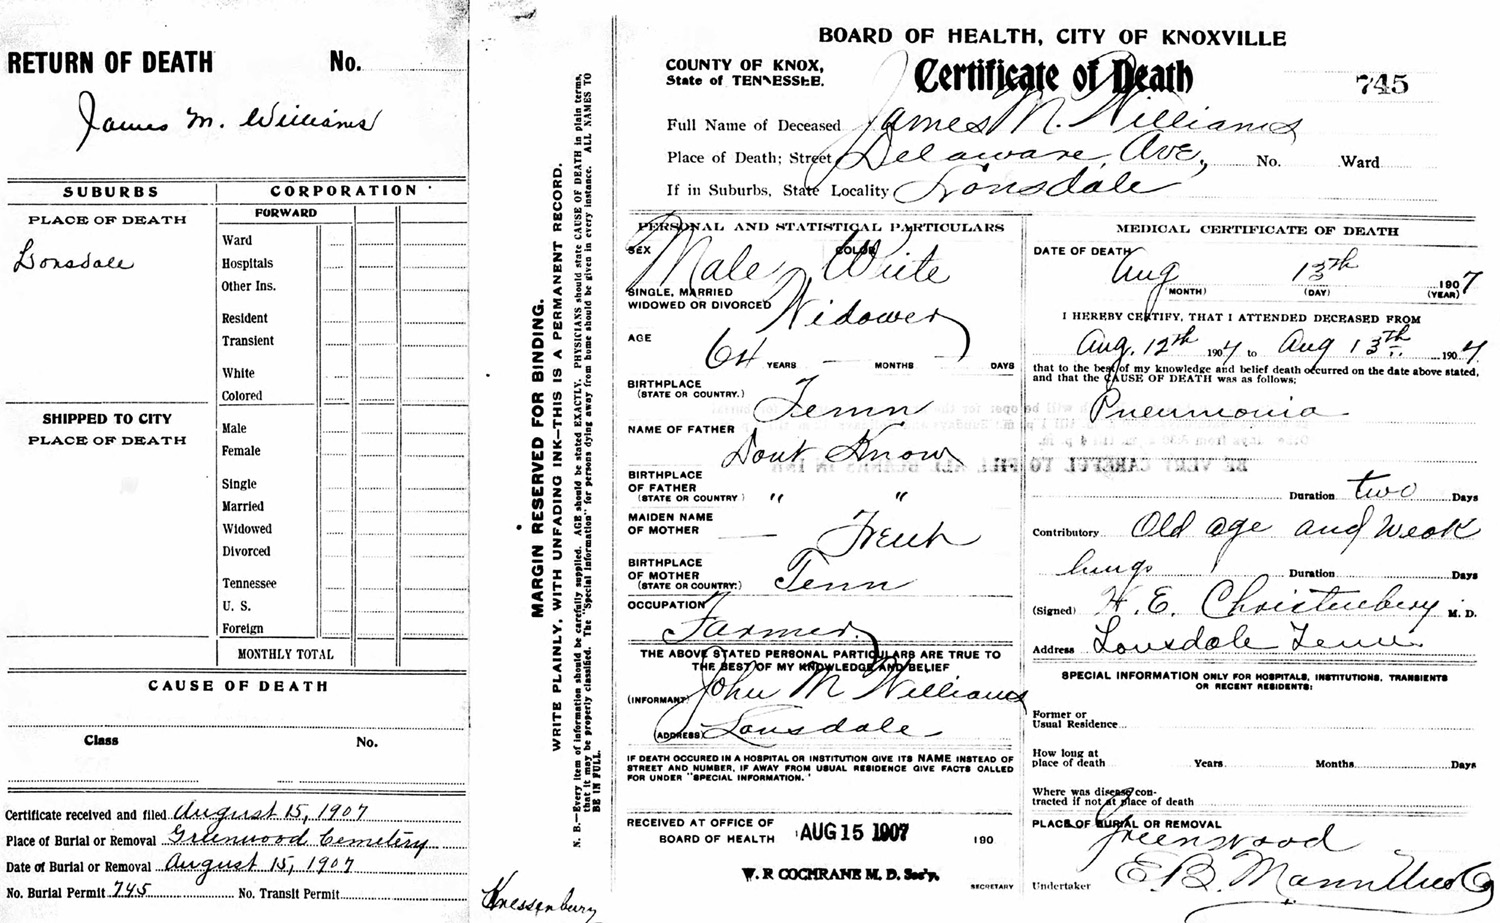 RETURN OF DEATH No.
James M. Williams
SUBURBS
PLACE OF DEATH
Lonsdale
SHIPPED TO CITY
PLACE OF DEATH
CORPORATION
FORWARD
Ward
Hospitals
Other Ins.
Resident
Transient
White
Colored
Male
Female
Single
Married
Widowed
Divorced
Tennessee
U. S.
Foreign
MONTHLY TOTAL
CAUSE OF DEATH
Class No.
Certificate received and filed August 15, 1907
Place of Burial or Removal Greenwood Cemetery
Date of Burial or Removal August 15, 1907
No. Burial Permit 745 No. Transit Permit
MARGIN RESERVED FOR BINDING.
WRITE PLAINLY, WITH UNFADING INK—THIS IS A PERMANENT RECORD.
N. B.—Every item of information should be carefully supplied. AGE should be stated EXACTLY. PHYSICIANS should state CAUSE OF DEATH in plain terms,
that it may be properly classified. The "Special Information" for persons dying away from home should be given in every instance. ALL NAMES TO
BE IN FULL.
BOARD OF HEALTH, CITY OF KNOXVILLE
COUNTY OF KNOX,
State of TENNESSEE.
Certificate of Death
745
Full Name of Deceased James M. Williams
Place of Death; Street Delaware Ave, No. Ward
If in Suburbs, State Locality Lonsdale
PERSONAL AND STATISTICAL PARTICULARS
SEX Male COLOR White
SINGLE, MARRIED
WIDOWED OR DIVORCED Widower
AGE
64 YEARS — MONTHS — DAYS
BIRTHPLACE
(STATE OR COUNTRY.) Tenn
NAME OF FATHER Dont Know
BIRTHPLACE
OF FATHER
(STATE OR COUNTRY) " "
MAIDEN NAME
OF MOTHER — French
BIRTHPLACE
OF MOTHER
(STATE OR COUNTRY.) Tenn
OCCUPATION
Farmer.
THE ABOVE STATED PERSONAL PARTICULARS ARE TRUE TO
THE BEST OF MY KNOWLEDGE AND BELIEF
(INFORMANT) John M Williams
(ADDRESS) Lonsdale
IF DEATH OCCURED IN A HOSPITAL OR INSTITUTION GIVE ITS NAME INSTEAD OF
STREET AND NUMBER, IF AWAY FROM USUAL RESIDENCE GIVE FACTS CALLED
FOR UNDER "SPECIAL INFORMATION."
RECEIVED AT OFFICE OF
BOARD OF HEALTH AUG 15 1907 190
W. R COCHRANE M. D. Sec'y.
SECRETARY
MEDICAL CERTIFICATE OF DEATH
DATE OF DEATH
Aug 13th 1907
(MONTH) (DAY) (YEAR)
I HEREBY CERTIFY, THAT I ATTENDED DECEASED FROM
Aug. 12th 1907 to Aug 13th 1907
that to the best of my knowledge and belief death occurred on the date above stated,
and that the CAUSE OF DEATH was as follows;
Pneumonia
BE VERY CAREFUL TO FILL ALL BLANKS IN INK
Duration two Days
Contributory Old age and Weak
lungs Duration Days
(Signed) H. E. Christenbery M. D.
Address Lonsdale Tenn
SPECIAL INFORMATION ONLY FOR HOSPITALS, INSTITUTIONS, TRANSIENTS
OR RECENT RESIDENTS:
Former or
Usual Residence
How long at
place of death Years Months Days
Where was disease con-
tracted if not at place of death
PLACE OF BURIAL OR REMOVAL
Greenwood
Undertaker E. B. Mann Und Co